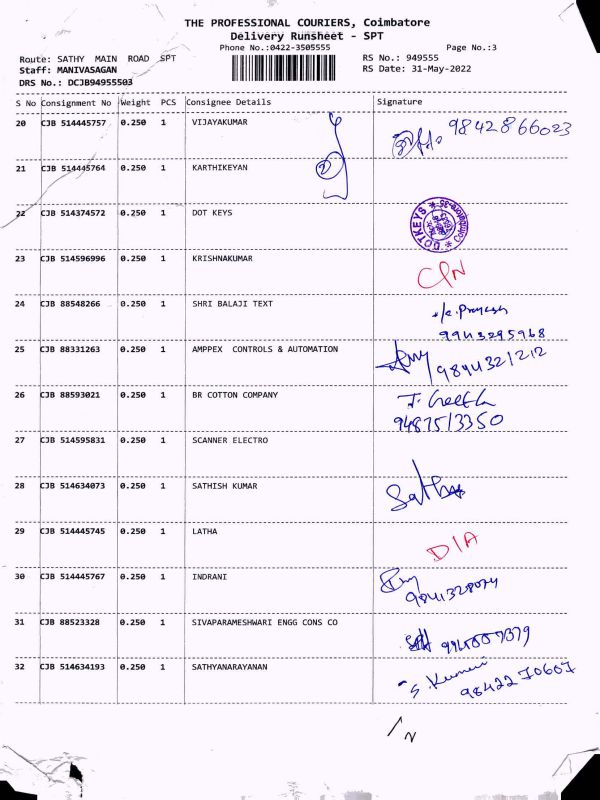 THE PROFESSIONAL COURIERS, Coimbatore
Delivery Runsheet - SPT
Phone No.:0422-3505555
Page No.:3
Route: SATHY MAIN ROAD SPT
RS No.: 949555
Staff: MANIVASAGAN
RS Date: 31-May-2022
DRS No.: DCJB94955503
S No Consignment No Weight PCS Consignee Details Signature
20 CJB 514445757 0.250 1 VIJAYAKUMAR 9842866023
21 CJB 514445764 0.250 1 KARTHIKEYAN
22 CJB 514374572 0.250 1 DOT KEYS DOTKEYS
23 CJB 514596996 0.250 1 KRISHNAKUMAR
24 CJB 88548266 0.250 1 SHRI BALAJI TEXT
9943295968
25 CJB 88331263 0.250 1 AMPPEX CONTROLS & AUTOMATION
26 CJB 88593021 0.250 1 BR COTTON COMPANY J. Geetha
9487513350
27 CJB 514595831 0.250 1 SCANNER ELECTRO
28 CJB 514634073 0.250 1 SATHISH KUMAR
29 CJB 514445745 0.250 1 LATHA D/A
30 CJB 514445767 0.250 1 INDRANI
31 CJB 88523328 0.250 1 SIVAPARAMESHWARI ENGG CONS CO
32 CJB 514634193 0.250 1 SATHYANARAYANAN S. Kumar
9842270607